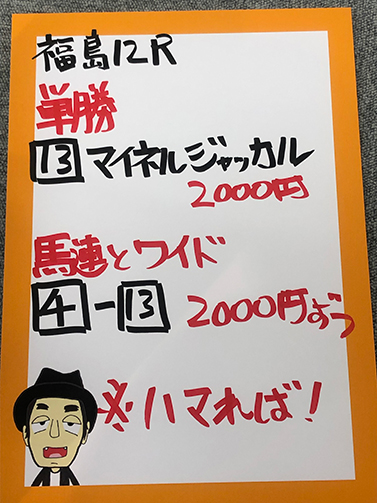 福島12R
単勝
13 マイネルジャッカル
2000円
馬連とワイド
4-13 2000円ずつ
※ハマれば!